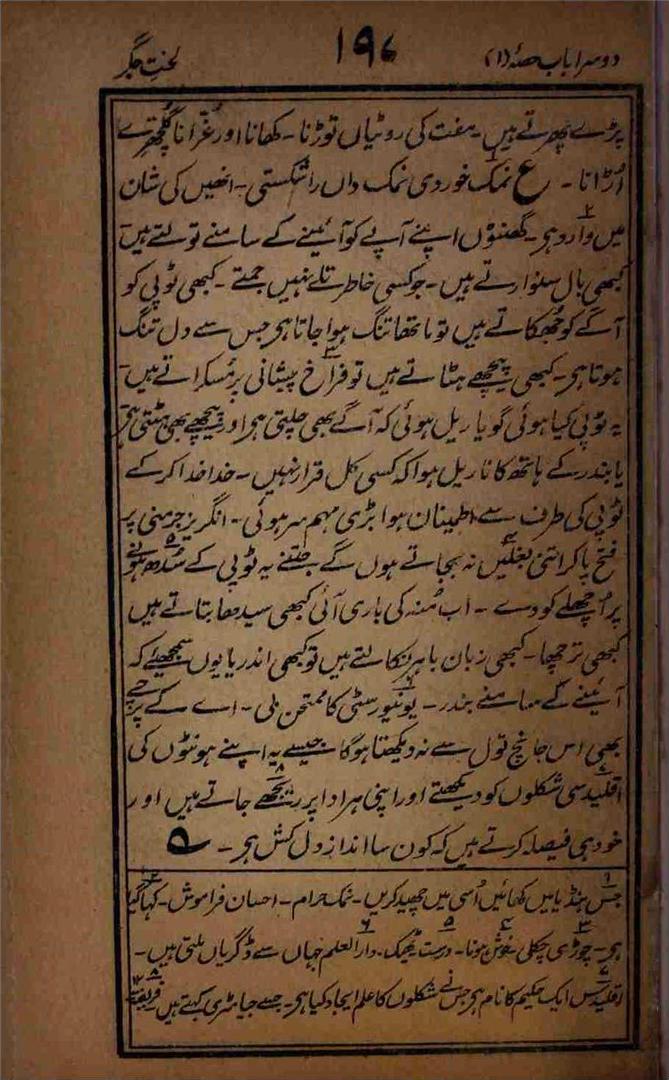 دوسرا باب حصہ (۱)
۱۹۷
لختِ جگر
پڑے پھرتے ہیں۔ مفت کی روٹیاں توڑنا۔ کھانا اور غُرّانا گلچھرے
اُڑانا۔ ع نمک خوردی نمک داں را شکستی۔ انھیں کی شان
میں وارد ہی۔ گھنٹوں اپنے آپے کو آئینے کے سامنے تولتے ہیں
کبھی بال سنوارتے ہیں۔ جو کسی خاطر تلے نہیں جمتے۔ کبھی ٹوپی کو
آگے کو جُھکاتے ہیں تو ماتھا تنگ ہوا جاتا ہی جس سے دل تنگ
ہوتا ہی۔ کبھی پیچھے ہٹاتے ہیں تو فراخ پیشانی پر مُسکراتے ہیں۔
یہ ٹوپی کیا ہوئی گویا ریل ہوئی کہ آگے بھی چلتی ہی اور پیچھے بھی ہٹتی ہی
یا بندر کے ہاتھ کا ناریل ہوا کہ کسی کل قرار نہیں۔ خدا خدا کر کے
ٹوپی کی طرف سے اطمینان ہوا بڑی مہم سر ہوئی۔ انگریز جرمنی پر
فتح پا کر اتنی بغلیں نہ بجاتے ہوں گے جتنے یہ ٹوپی کے سُدھ ہونے
پر اُچھلے کودے۔ اب مُنہ کی باری آئی کبھی سیدھا بتاتے ہیں
کبھی ترچھا۔ کبھی زبان باہر نکالتے ہیں تو کبھی اندر یا یوں سمجھیئے کہ
آئینے کے سامنے بندر۔ یونیورسٹی کا ممتحن بی۔ اے کے پرچے
بھی اس جانچ تول سے نہ دیکھتا ہوگا جیسے یہ اپنے ہونٹوں کی
اقلیدسی شکلوں کو دیکھتے اور اپنی ہر ادا پر ریجھے جاتے ہیں اور
خود ہی فیصلہ کرتے ہیں کہ کون سا انداز دل کش ہی۔ ۵
۱ جس ہنڈیا میں کھائیں اُسی میں چھید کریں۔ نمک حرام۔ احسان فراموش۔ ۲ کہا گیا
ہی۔ ۳ چوڑی چکلی ۴ خوش ہونا۔ ۵ درست ٹھیک۔ ۶ دارالعلم جہاں سے ڈگریاں ملتی ہیں۔
۷ اقلیدس ایک حکیم کا نام ہی جس نے شکلوں کا علم ایجاد کیا ہی۔ جسے جیامٹری کہتے ہیں ۸ فریفتہ ۱۲